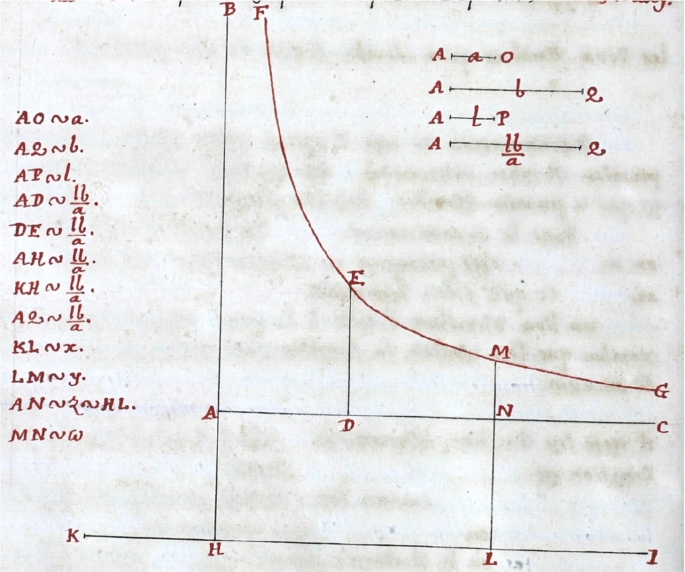 B F
A a O
A b Q
A l P
A lb/a Q
AO ~ a.
AQ ~ b.
AP ~ l.
AD ~ lb/a.
DE ~ lb/a.
AH ~ lb/a.
KH ~ lb/a.
AQ ~ lb/a.
KL ~ x.
LM ~ y.
AN ~ z ~ HL.
MN ~ ω
E
M
G
A D N C
K H L I